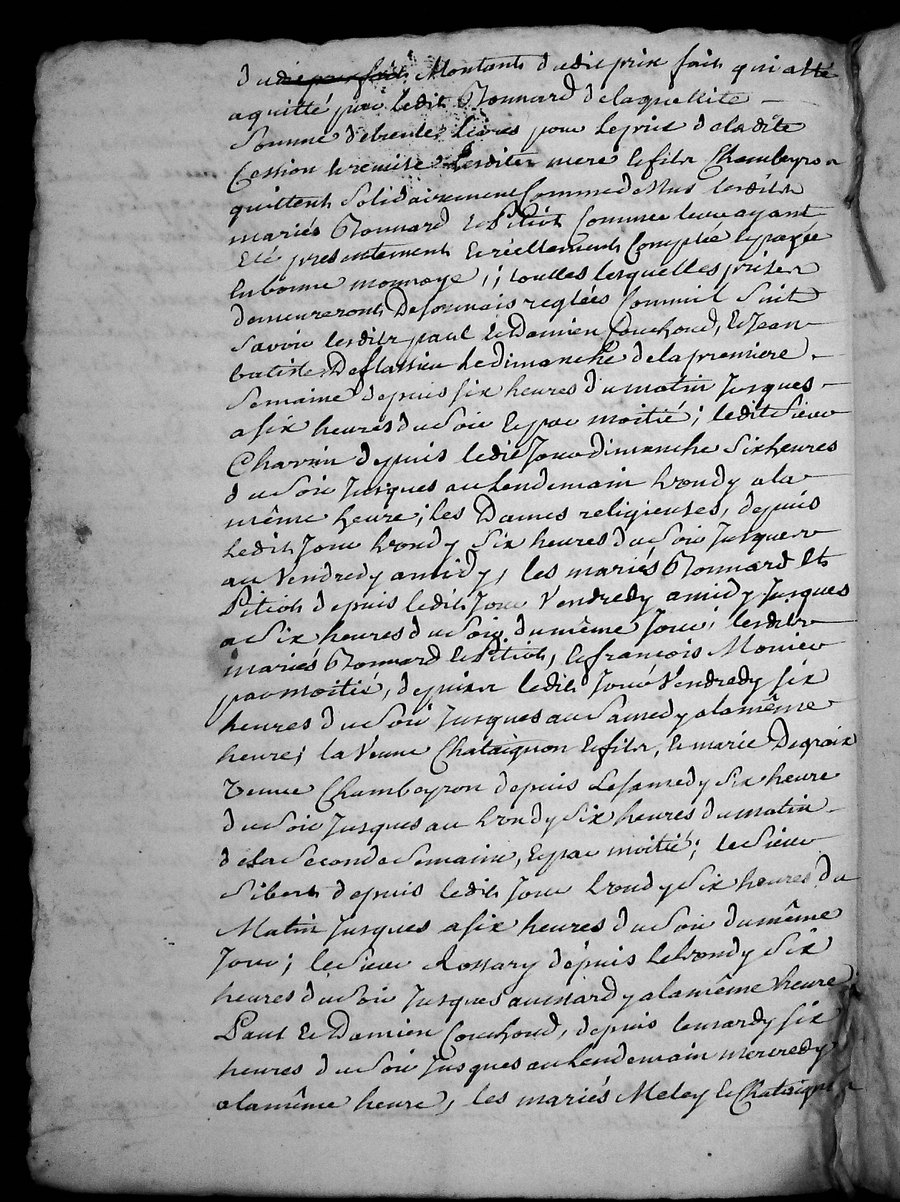 du die prix fait Montant dudit prix fait qui a eté
aquitté par ledit Bonnard de laquelle
Somme de trente Livres pour le prix de ladite
Cession et remise Lesdits mere et fils Chambeyron
quittent Solidairement Comme dessus lesdits
mariés Bonnard et Pitiot Comme leur ayant
Eté presentement et réellement Comptée et payée
En bonne monnoye ; toutes lesquelles prises
demeureront Desormais reglées Comme il Suit
Savoir lesdits paul et Damien Couchoud, et Jean
batiste Deflassieu le dimanche de la premiere
Semaine depuis six heures du matin Jusques
a six heures du Soir Et par moitié ; ledit Sieur
Charvin depuis ledit Jour dimanche Six heures
du Soir Jusques au Lendemain Lundy a la
même heure ; les Dames religieuses, depuis
ledit Jour Lundy Six heures du Soir Jusques
au Vendredy a midy, les mariés Bonnard Et
Pitiot depuis ledit Jour Vendredy a midy Jusques
a Six heures du Soir du même Jour ; lesdits
mariés Bonnard et Pitiot, et francois Monier
par moitié, depuis ledit Jour Vendredy six
heures du Soir Jusques au Samedy a la même
heure ; la Veuve Chataignon et fils, et marie Degraix
Veuve Chambeyron depuis Le samedy Six heure
du Soir Jusques au Lundy Six heures du matin
de la Seconde Semaine, Et par moitié ; le Sieur
Sibert depuis ledit Jour Lundy Six heures du
Matin Jusques a six heures du Soir du même
Jour ; le Sieur Rossary depuis Le Lundy Six
heures du Soir Jusques au mardy a la même heure
Paul et Damien Couchoud, depuis le mardy six
heures du Soir Jusques au Lendemain mercredy
a la même heure, les mariés Meley et Chataignon